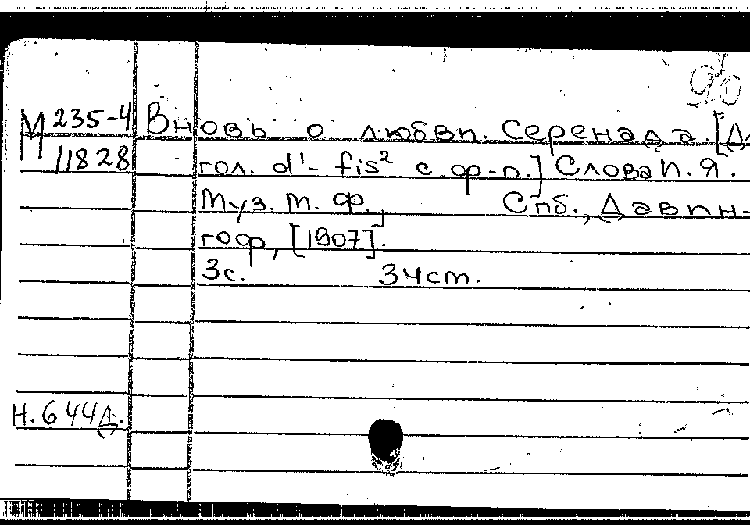 90
М 235-4 Вновь о любви. Серенада. [Д
11828 гол. d¹- fis² с ф-п.] Слова П. Я.
Муз. М. Ф. Спб., Давин-
гоф, [1907].
3с. 34см.
Н. 644Д.